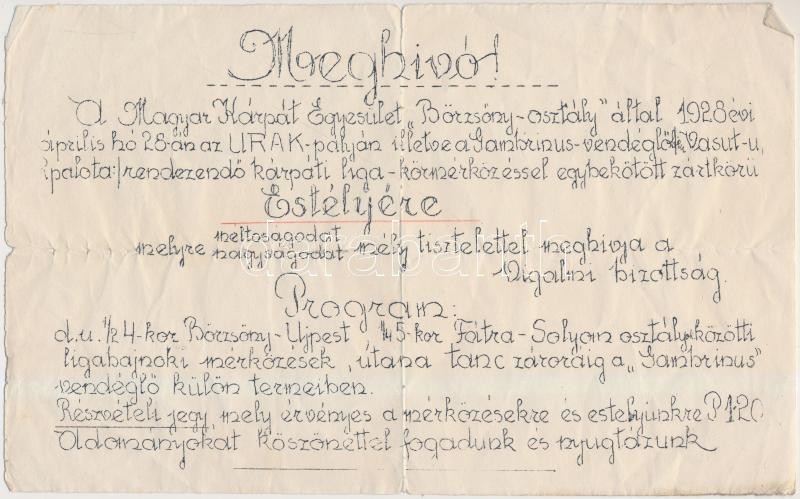 Meghivó!
A Magyar Kárpát Egyesület „Börzsöny-osztály" által 1928 évi
április hó 28-án az URAK-pályán illetve a Gambrinus-vendéglő Vasut-u,
palota:/rendezendő kárpáti liga-körmérkőzéssel egybekötött zártkörű
Estélyére
melyre méltoságodat
nagyságodat mély tisztelettel meghivja a
Vigalmi bizottság.
Program:
d.u. ½4-kor Börzsöny-Ujpest ¼5-kor Fátra-Solyom osztályközötti
ligabajnoki mérkőzések, utána tánc záróráig a „Gambrinus"
vendéglő külön termeiben.
Részvételi jegy mely érvényes a mérkőzésekre és estélyünkre P 1.20
Adományokat köszönettel fogadunk és nyugtázunk
darabanth